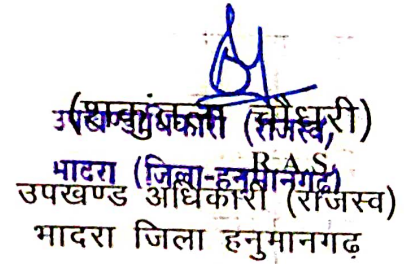 (शकुंतला चौधरी)
उपखण्ड अधिकारी (राजस्व)
R.A.S.
भादरा (जिला-हनुमानगढ़)
उपखण्ड अधिकारी (राजस्व)
भादरा जिला हनुमानगढ़